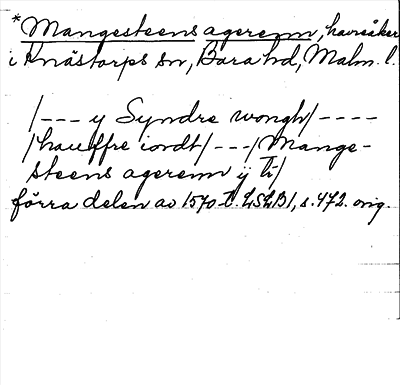 *Mangesteens agerenn, havreåker
i Knästorps sn, Bara hd, Malm. l.
/--- y Syndre wongh/----
/hauffre iordt/---/Mange-
steens agerenn ÿ
förra delen av 1570-t. LSLB1, s. 472. orig.